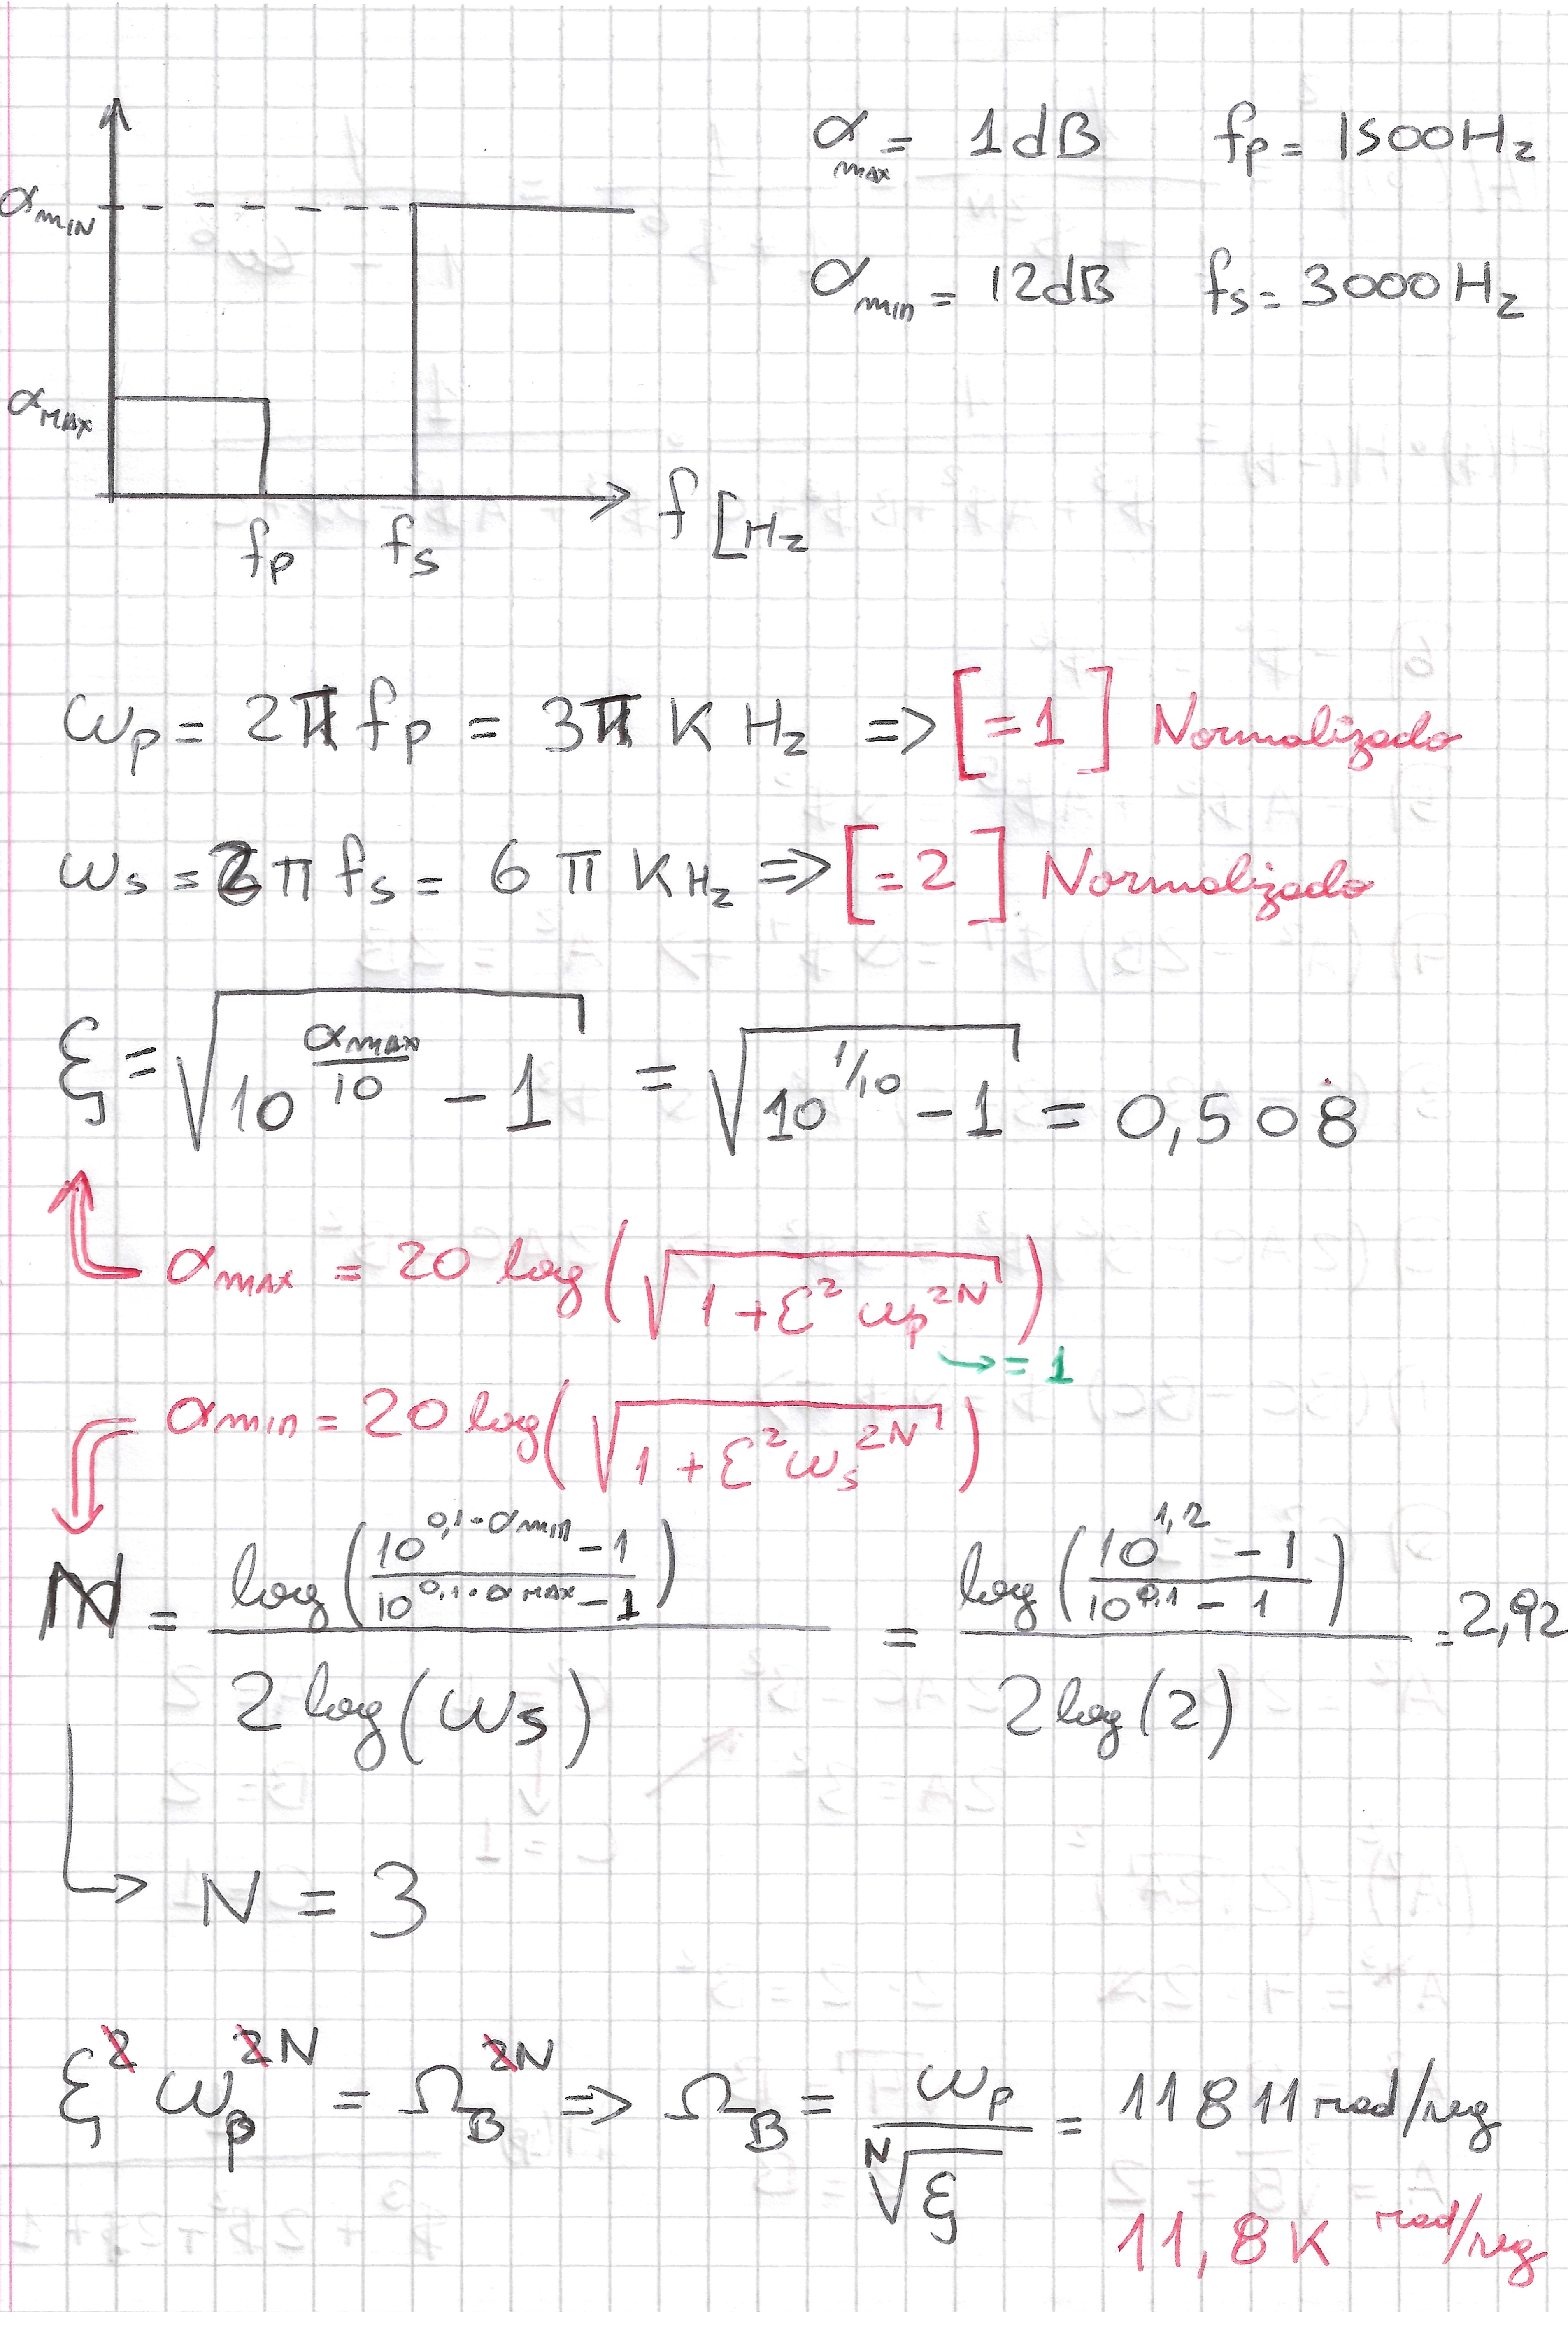 α_max = 1dB   fp = 1500Hz
α_MIN
α_min = 12dB   fs = 3000Hz
α_MAX
f [Hz
fp   fs
ωp = 2π fp = 3π KHz => [=1] Normalizado
ωs = 2π fs = 6π KHz => [=2] Normalizado
ξ = √(10^(α_max/10) - 1) = √(10^(1/10) - 1) = 0,508
α_max = 20 log(√(1 + ε² ωp^2N))
→ = 1
α_min = 20 log(√(1 + ε² ωs^2N))
N = log((10^(0,1·α_min) - 1)/(10^(0,1·α_MAX) - 1)) / 2 log(ωs) = log((10^1,2 - 1)/(10^0,1 - 1)) / 2 log(2) = 2,92
↳ N = 3
ξ² ωp^2N = Ω_B^2N => Ω_B = ωp / ᴺ√ξ = 11811 rad/seg
11,8K rad/seg